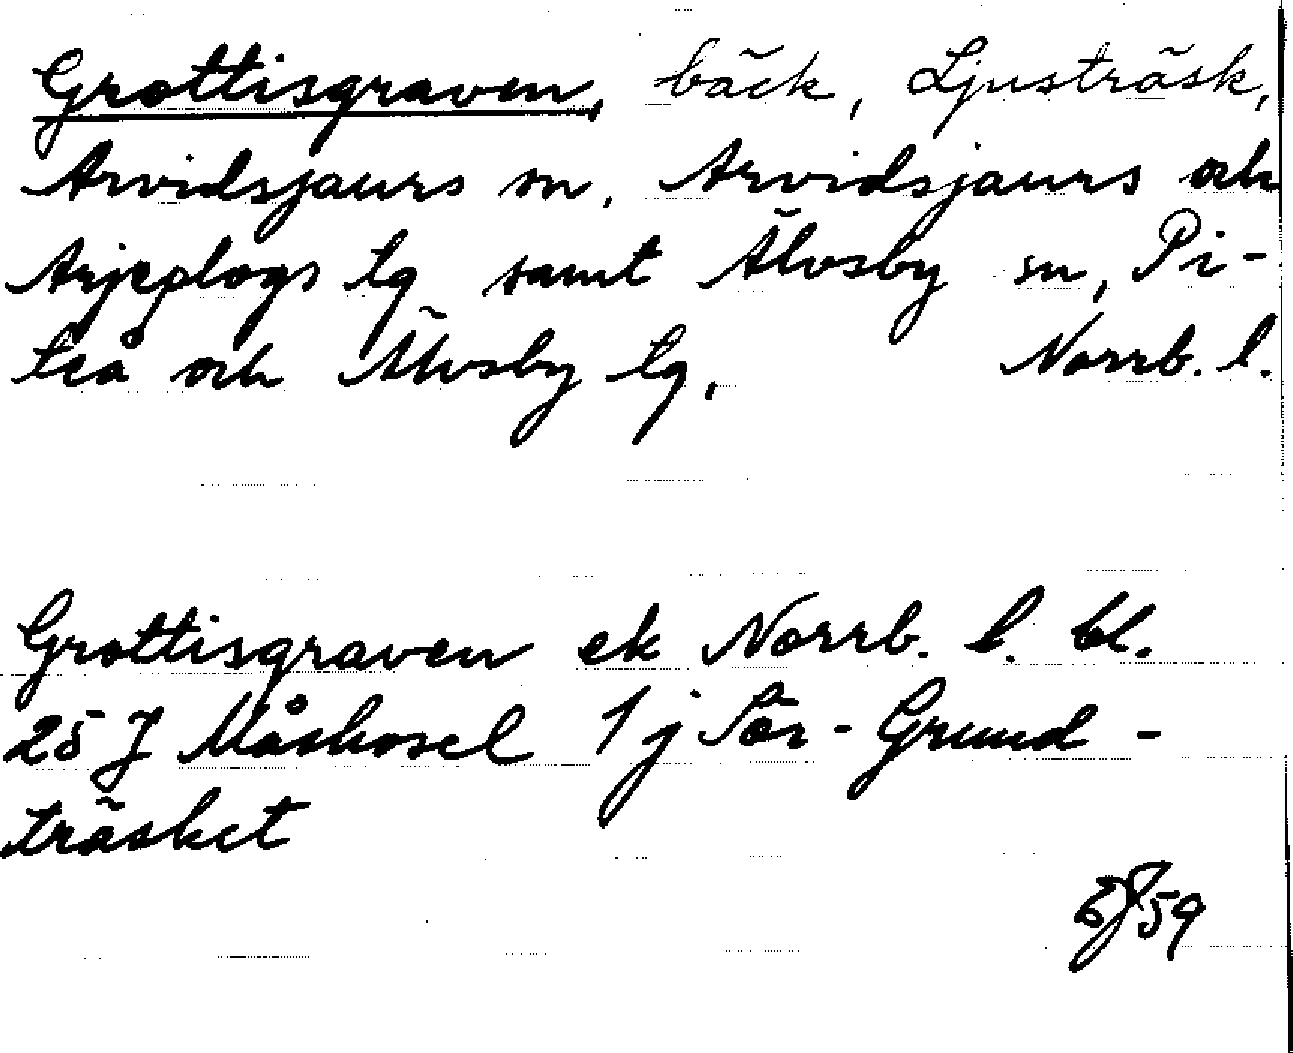 Grottisgraven, bäck, Ljusträsk,
Arvidsjaurs sn, Arvidsjaurs och
Arjeplogs tg samt Älvsby sn, Pi-
teå och Älvsby tg, Norrb. l.
Grottisgraven ek Norrb. l. bl.
25 J Måskosel 1 j Sör-Grund-
träsket
59